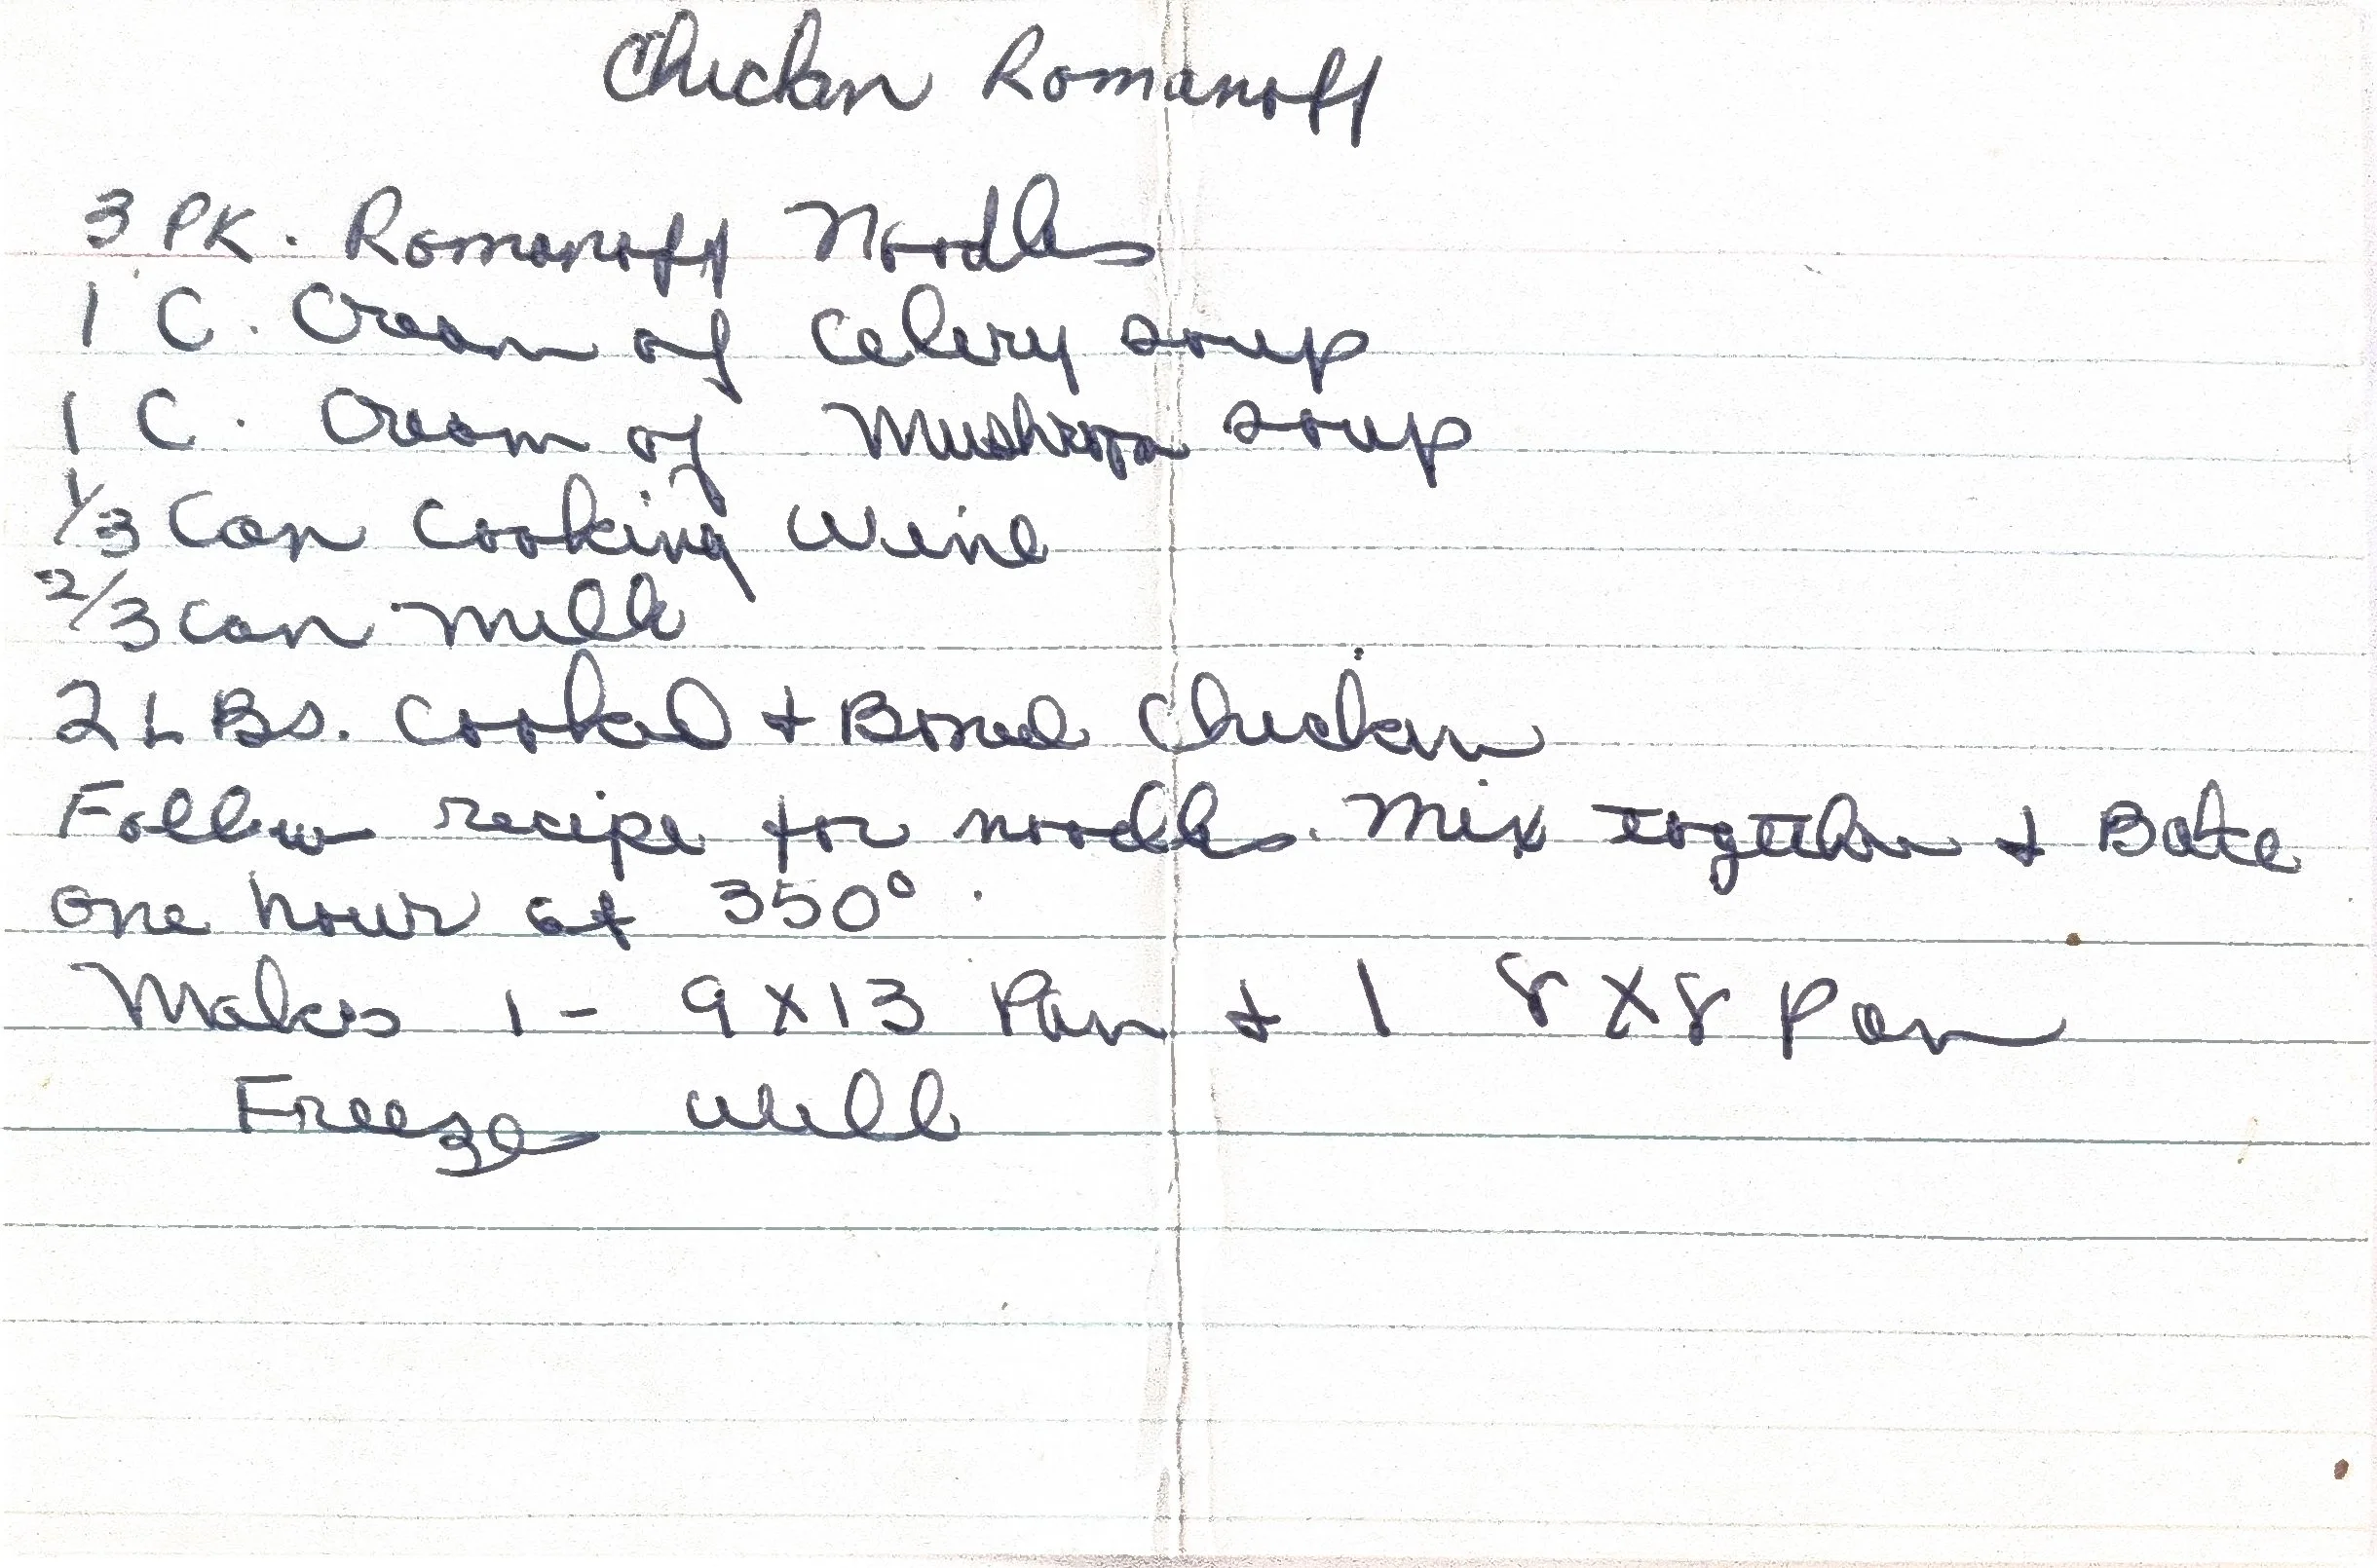 Chicken Romanoff
3 PK. Romanoff Noodles
1 C. Cream of Celery soup
1 C. Cream of Mushroom soup
1/3 Can Cooking Wine
2/3 can milk
2 LBs. Cooked + Boned Chicken
Follow recipe for noodles. Mix together + Bake
one hour at 350°.
Makes 1 - 9x13 Pan + 1 8x8 Pan
Freeze well